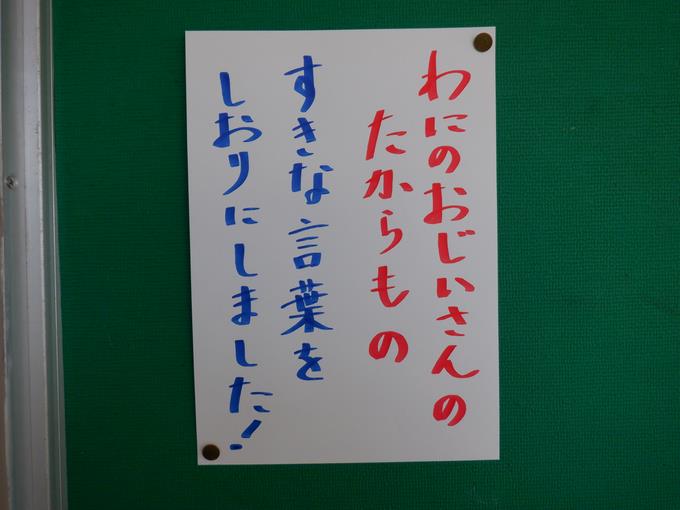 わにのおじいさんの
たからもの
すきな言葉を
しおりにしました!